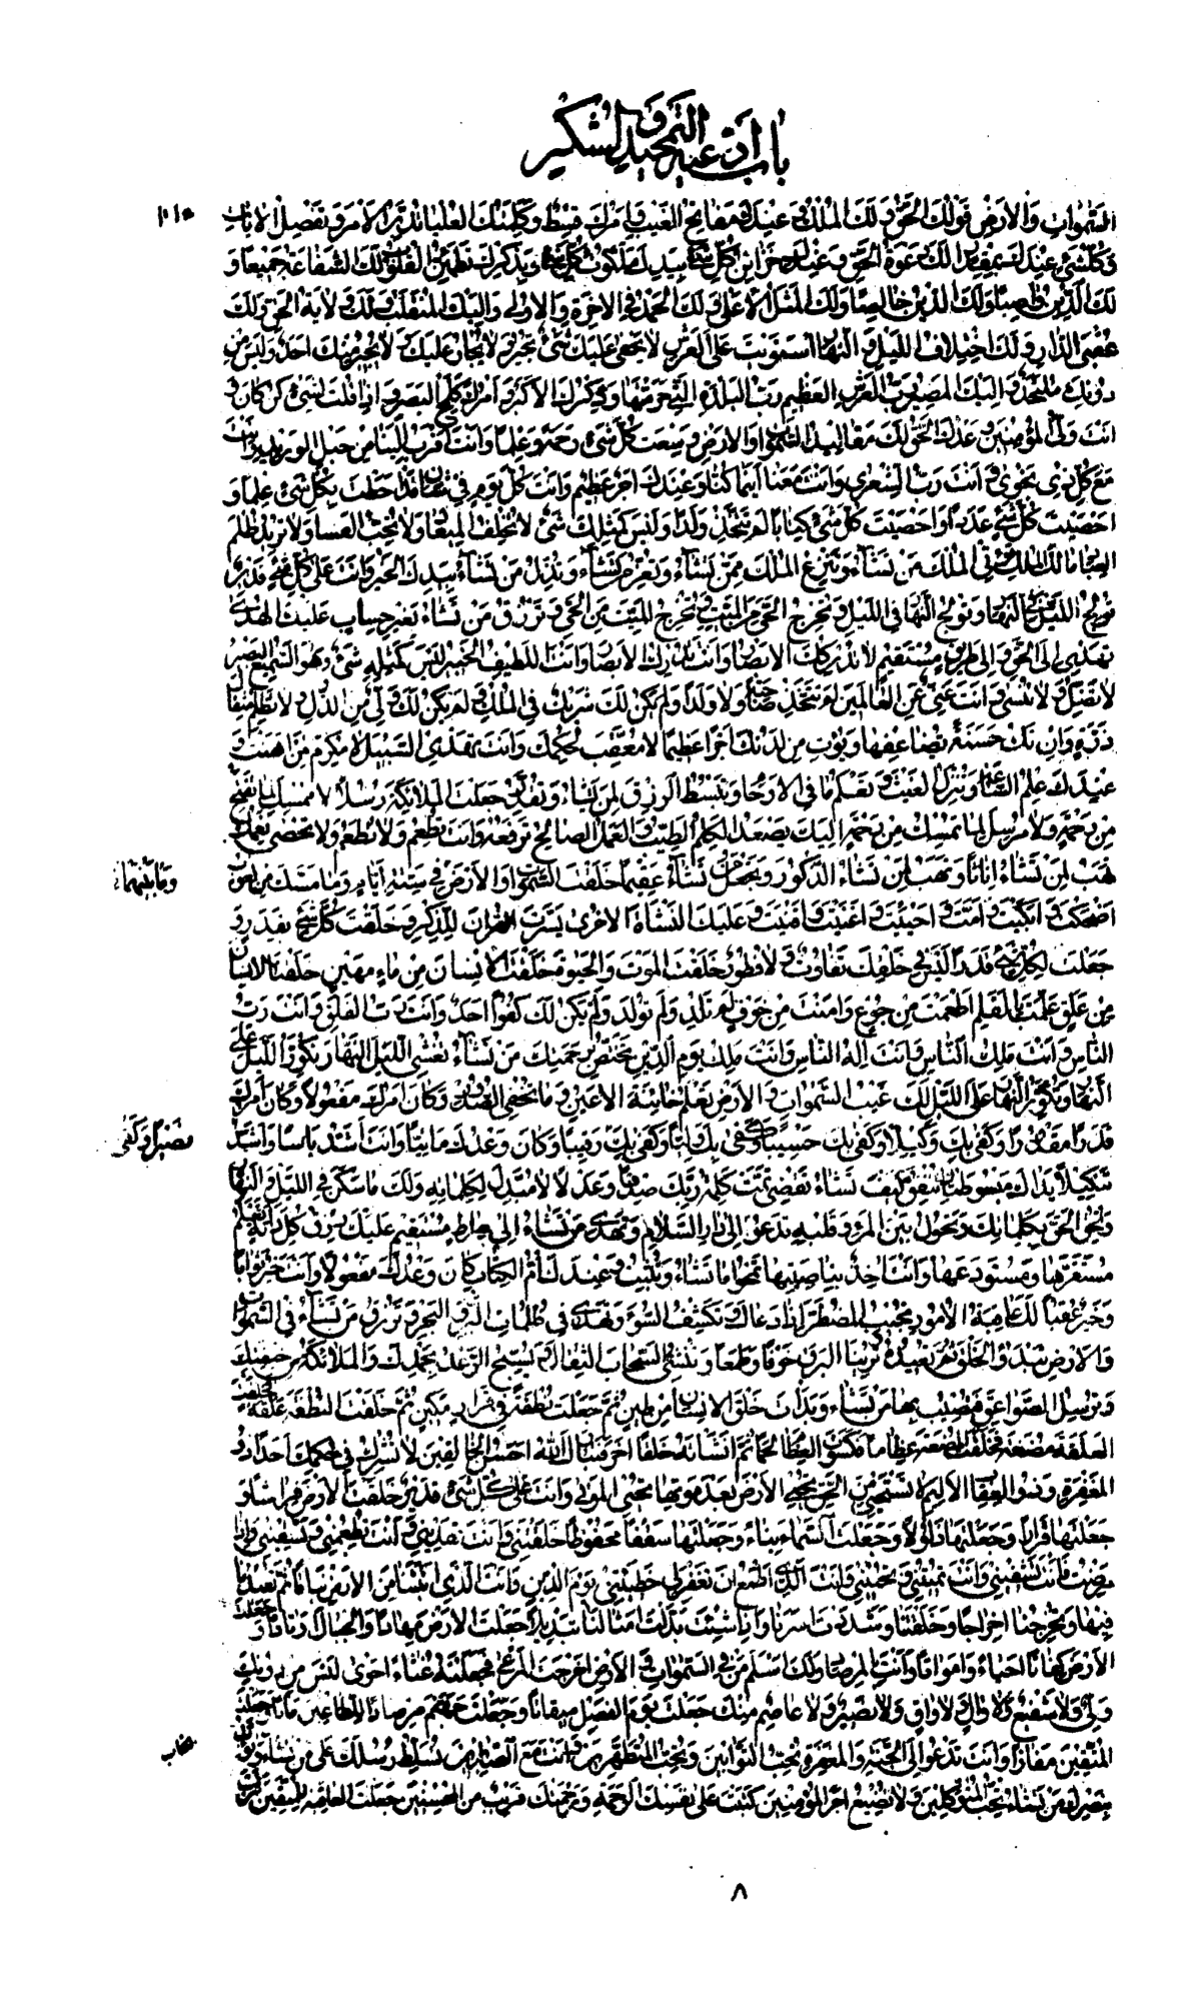 باب ادعية التمجيد والشكر
السموات والارض قولك الحق ولك الملك وعندك مفاتح الغيب وامرك قسط وكلمتك العليا تدبر الامر وتفصل الايات
وكل شئ عندك بمقدار لك دعوة الحق وعندك خزاين كل شئ بيدك ملكوت كل شئ وبذكرك تطمئن القلوب لك الشفاعة جميعا و
لك الدين واصبا ولك الدين خالصا ولك المثل الاعلى ولك الحمد في الاخرة والاولى واليك المنقلب لك ولاية الحق ولك
عقبى الدار ولك اختلاف الليل والنهار استويت على العرش لا يخفى عليك شئ تجير ولا يجار عليك لا يجير منك احد وليس من
دونك ملتحد واليك المصير رب العرش العظيم رب البلدة التي حرمتها وذكرك الاكبر وامرك كلمح البصر واذا قلت لشئ كن كان و
انت ولي المؤمنين وعدك الحق لك مقاليد السموات والارض وسعت كل شئ رحمة وعلما وانت اقرب الينا من حبل الوريد وانت
مع كل ذي نجوى انت رب الشعرى وانت معنا اينما كنا وعندك اجر عظيم وانت كل يوم في شان قد احطت بكل شئ علما و
احصيت كل شئ عددا واحصيت كل شئ كتابا لم تتخذ ولدا وليس كمثلك شئ لا تخلف الميعاد ولا تحب الفساد ولا تريد ظلم
العباد مالك الملك تؤتي الملك من تشاء وتنزع الملك ممن تشاء وتعز من تشاء وتذل من تشاء بيدك الخير وانت على كل شئ قدير
تولج الليل في النهار وتولج النهار في الليل وتخرج الحي من الميت وتخرج الميت من الحي وترزق من تشاء بغير حساب عليك الهدى
تهدي الى الحق والى طريق مستقيم لا تدركك الابصار وانت تدرك الابصار وانت اللطيف الخبير ليس كمثله شئ وهو السميع البصير
لا تضل ولا تنسى وانت غني عن العالمين لم تتخذ صاحبة ولا ولدا ولم يكن لك شريك في الملك ولم يكن لك ولي من الذل ولا تظلم مثقال
ذرة وان تك حسنة تضاعفها وتؤت من لدنك اجرا عظيما لا معقب لحكمك وانت تهدي السبيل لا مكرم من اهنت و
عندك علم الساعة وتنزل الغيث وتعلم ما في الارحام وتبسط الرزق لمن تشاء وتقدر جعلت الملائكة رسلا لا ممسك لما تفتح
من رحمة ولا مرسل لما تمسك من رحمة اليك يصعد الكلم الطيب والعمل الصالح ترفعه وانت تطعم ولا تطعم ولا تحصى نعمك
تهب لمن تشاء اناثا وتهب لمن تشاء الذكور وتجعل من تشاء عقيما خلقت السموات والارض في ستة ايام وما مسك من لغوب
وما بينهما
اضحكت وابكيت وامت واحييت واغنيت واقنيت وعليك النشاة الاخرى يسرت القران للذكر وخلقت كل شئ بقدر و
جعلت لكل شئ قدرا ليس في خلقك تفاوت ولا فطور خلقت الموت والحيوة خلقت الانسان من ماء مهين خلقت الانسان
من علق علمت بالقلم اطعمت من جوع وامنت من خوف لم تلد ولم تولد ولم يكن لك كفوا احد وانت رب الفلق وانت رب
الناس وانت ملك الناس وانت اله الناس وانت ملك يوم الدين تختص برحمتك من تشاء تغشى الليل النهار وتكور الليل على
النهار وتكور النهار على الليل لك غيب السموات والارض تعلم خائنة الاعين وما تخفى الصدور وكان امرك مفعولا وكان امرك
قدرا مقدورا وكفى بك وكيلا وكفى بك حسيبا وكفى بك وليا وكفى بك رقيبا وكان وعدك ماتيا وانت اشد باسا واشد
نصيرا وكفى
تنكيلا يداك مبسوطتان تنفق كيف تشاء تقضي تمت كلمة ربك صدقا وعدلا لا مبدل لكلماته ولك ما سكن في الليل والنهار
وتحق الحق بكلماتك وتحول بين المرء وقلبه تدعو الى دار السلام وتهدي من تشاء الى صراط مستقيم عليك رزق كل دابة تعلم
مستقرها ومستودعها وانت اخذ بناصيتها تمحو ما تشاء وتثبت وعندك ام الكتاب كان وعدك مفعولا وانت خير ثوابا
وخير عقبا لك عاقبة الامور تجيب المضطر اذا دعاك وتكشف السوء وتهدي في ظلمات البر والبحر وترزق من تشاء في السموات
والارض تبدئ الخلق ثم تعيده ترينا البرق خوفا وطمعا وتنشئ السحاب الثقال يسبح الرعد بحمدك والملائكة من خيفتك
وترسل الصواعق فتصيب بها من تشاء وبدات خلق الانسان من طين ثم جعلت نطفة في قرار مكين ثم خلقت النطفة علقة
العلقة مضغة فخلقت المضغة عظاما فكسوت العظام لحما ثم انشاته خلقا اخر فتبارك الله احسن الخالقين لا تشرك في حكمك احدا ذو
المغفرة وذو العقاب الاليم لا تستحيي من الحق تحيي الارض بعد موتها تحيي الموتى وانت على كل شئ قدير خلقت الارض فراشا و
جعلتها قرارا وجعلتها ذلولا وجعلت السماء بناء وجعلتها سقفا محفوظا خلقتني وانت تهديني وانت تطعمني وتسقيني واذا
مرضت فانت تشفيني وانت تميتني وتحييني وانت الذي اطمع ان تغفر لي خطيئتي يوم الدين وانت الذي انبتنا من الارض نباتا ثم تعيدنا
فيها وتخرجنا اخراجا وخلقتنا وشددت اسرنا واذا شئت بدلت امثالنا تبديلا جعلت الارض مهادا والجبال اوتادا وجعلت
الارض كفاتا احياء وامواتا وانت بالمرصاد ولك اسلم من في السموات والارض اخرجت المرعى فجعلته غثاء احوى ليس من دونك
ولي ولا شفيع ولا وال ولا واق ولا نصير ولا عاصم منك جعلت يوم الفصل ميقاتا وجعلت جهنم مرصادا للطاغين مابا وجعلت
للمتقين مفازا وانت تدعو الى الجنة والمغفرة تحب التوابين وتحب المتطهرين وانت مع الصابرين تسلط رسلك على من تشاء وتؤيد
بنصرك من تشاء تحب المتوكلين ولا تضيع اجر المؤمنين كتبت على نفسك الرحمة ورحمتك قريب من المحسنين جعلت العاقبة للمتقين
٨